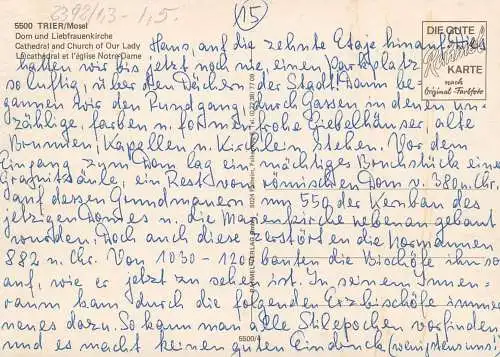 2392/03 - 1,5.
15
5500 TRIER/Mosel
Dom und Liebfrauenkirche
Cathedral and Church of Our Lady
La cathédral et l'église Notre-Dame
DIE GUTE
KARTE
nach
Original-Farbfoto
Haus, auf die zehnte Etage hinauf. Dies
hatten wir bis jetzt noch nie, einen Parkplatz
so luftig, über den Dächern der Stadt. Dann be-
gannen wir den Rundgang durch Gassen in denen un-
zählige, farben u. formenfrohe Giebelhäuser alte
Brunnen, Kapellen u. Kirchlein stehen. Vor dem
Eingang zum Dom lag ein mächtiges Bruchstück einer
Granitsäule, ein Rest vom römischen Dom v. 380 n. Chr.
auf dessen Grundmauern um 550 der Kernbau des
jetzigen Domes u. die Marienkirche nebenan gebaut
wurden. Doch auch diese zerstörten die Normannen
882 n. Chr. Von 1030 - 1200 bauten die Bischöfe ihn so
auf, wie er jetzt zu sehen ist. In seinem Innen-
raum haben durch die folgenden Erzbischöfe immer
neues dazu. So kann man alle Stilepochen vorfinden
und es macht keinen guten Eindruck (wenigstens uns)
5500/4